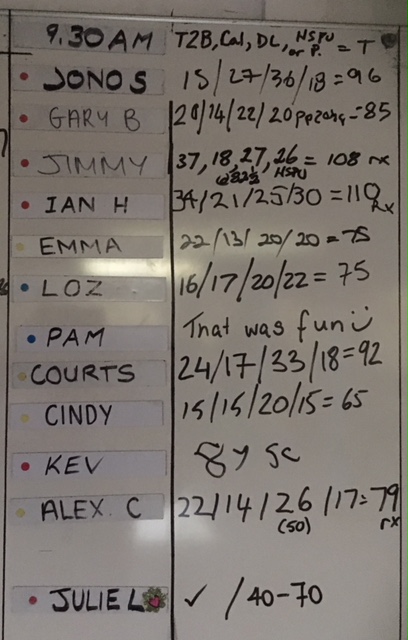 9.30AM T2B, Cal, DL, HSPU or P. = T
JONO S 15/27/36/18=96
GARY B 29/14/22/20 =85
JIMMY 37,18,27,26 = 108 rx
HSPU
IAN H 34/21/25/30 =110 Rx
EMMA 22/13/20/20 = 75
LOZ 16/17/20/22 = 75
PAM That was fun
COURTS 24/17/33/18=92
CINDY 15/15/20/15=65
KEV 89 sc
ALEX. C 22/14/26/17=79
(50) rx
JULIE L ✓ /40-70